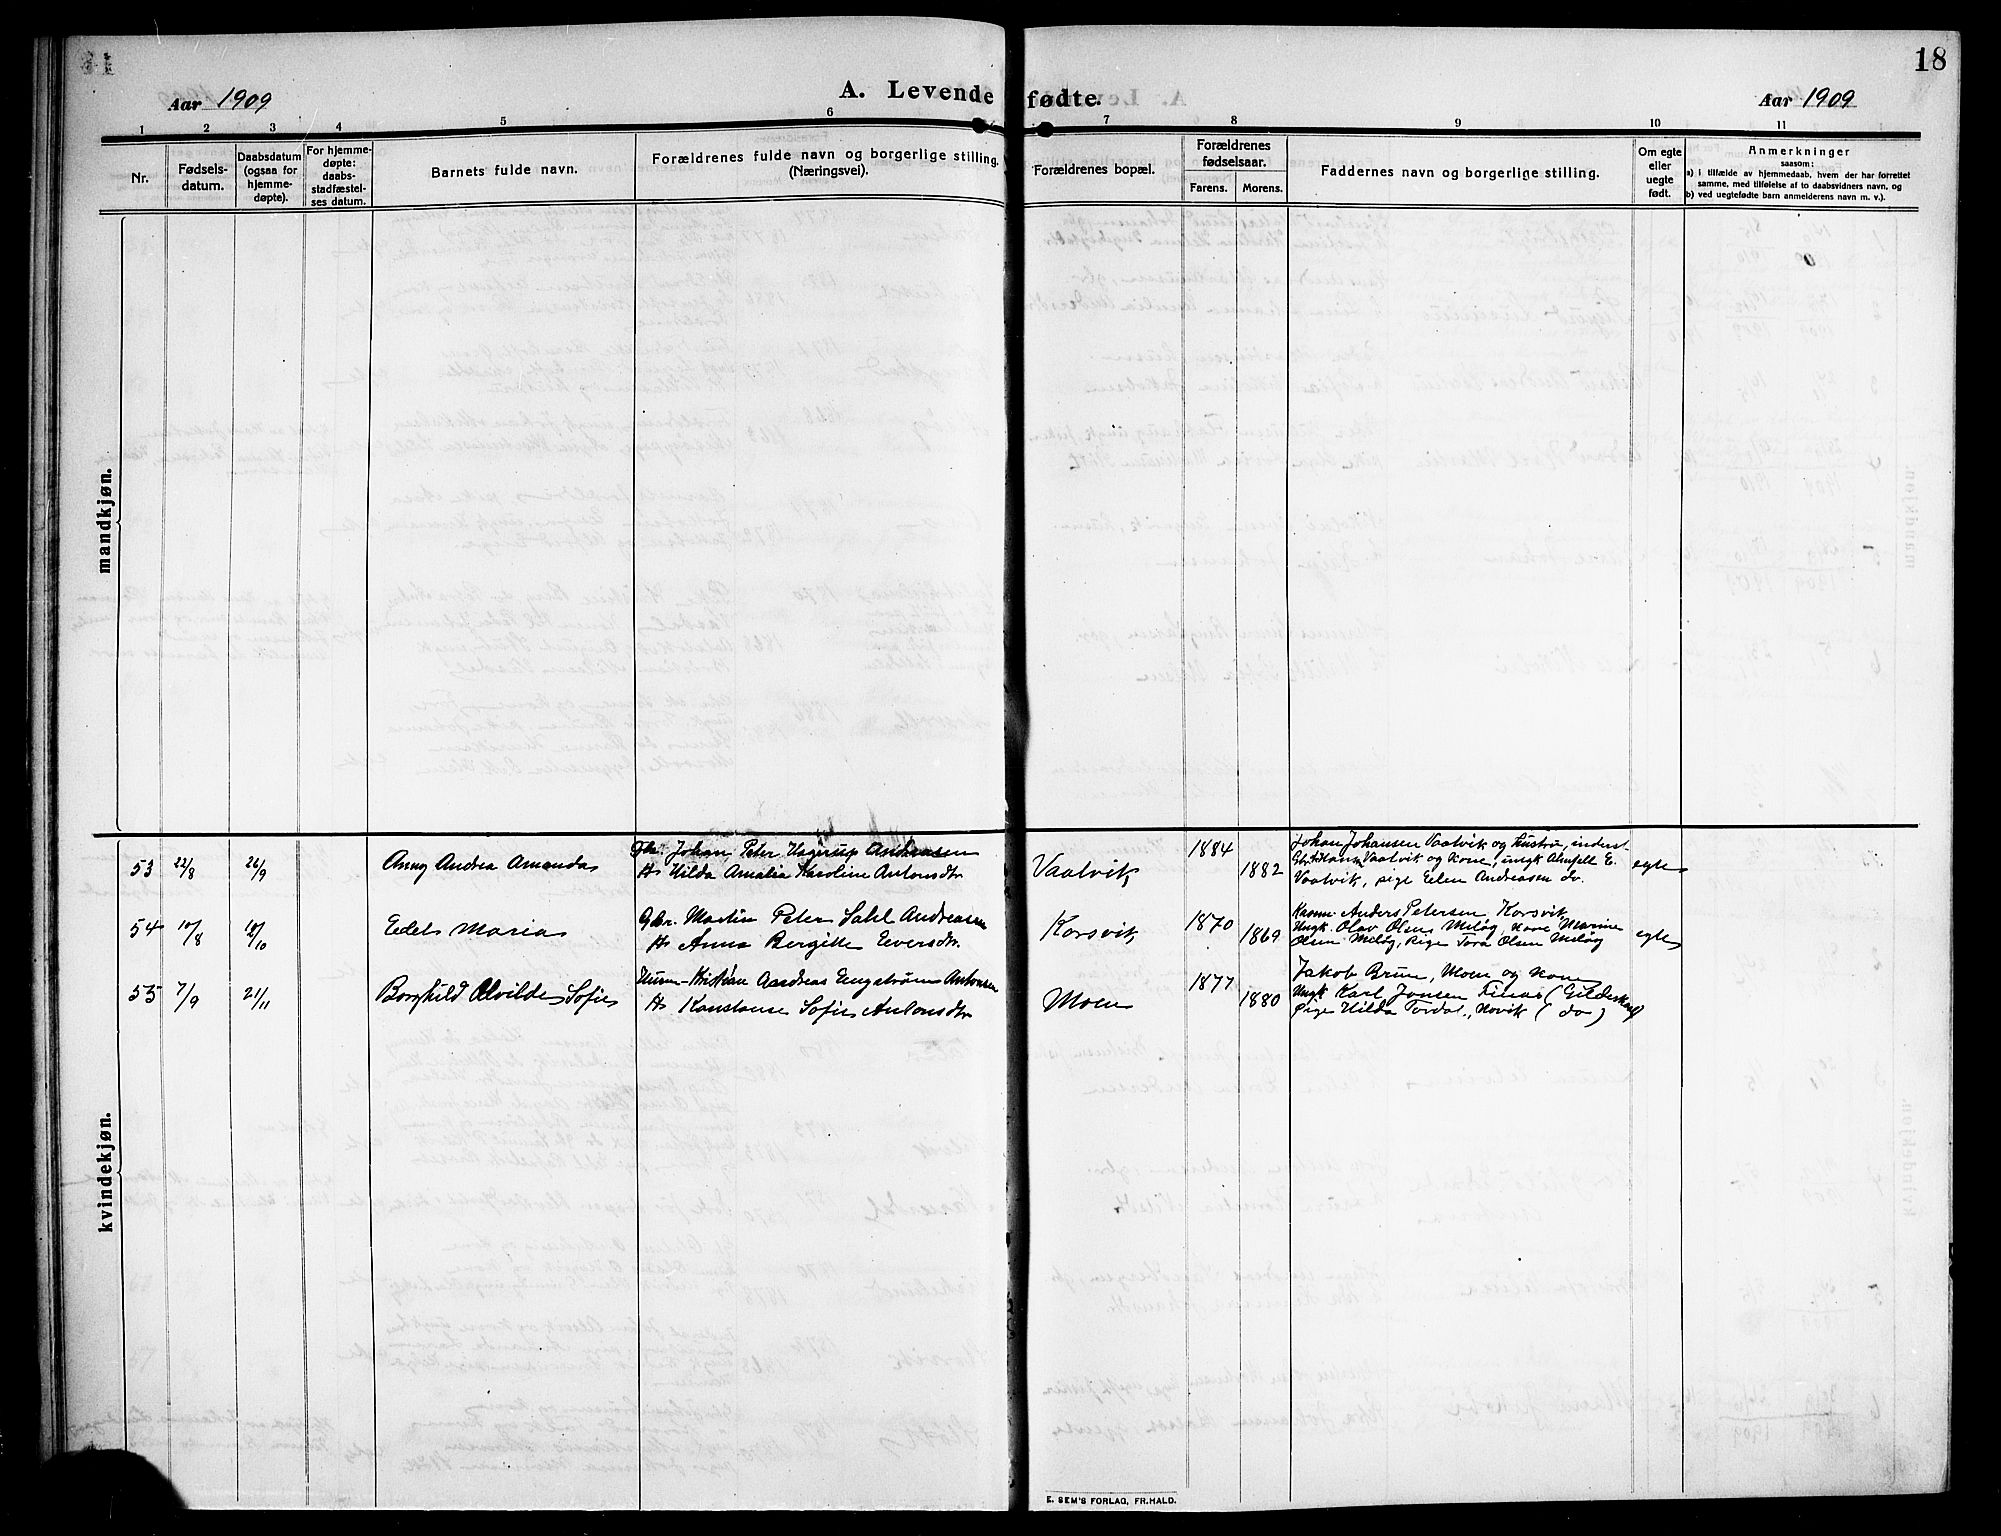 18
A. Levende fødte.
Aar 1909
Aar 1909
1 2 3 4 5 6 7 8 9 10 11
Nr.
Fødsels-
datum.
Daabsdatum
(ogsaa for
hjemme-
døpte).
For hjemme-
døpte:
daabs-
stadfæstel-
ses datum.
Barnets fulde navn.
Forældrenes fulde navn og borgerlige stilling.
(Næringsvei.)
Forældrenes bopæl.
Forældrenes
fødselsaar.
Farens. Morens.
Faddernes navn og borgerlige stilling.
Om egte
eller
uegte
født.
Anmerkninger
saasom:
a) i tilfælde av hjemmedaab, hvem der har forrettet
samme, med tilføielse af to daabsvidners navn, og
b) ved uegtefødte barn anmelderens navn m. v.).
mandkjøn.
kvindekjøn.
53 22/8 26/9 Anny Andrea Amanda
Johan Peter Hagerup Andreasen
Hs Hilda Amalia Karoline Antonsdtr
Vaatvik 1884 1882
Johan Johansen Vaatvik og hustru, inderst
Vaatvik og kone, ungk Almfelt E.
Vaatvik, pige Elen Andreasen do.
egte
54 10/8 10/10 Edel Maria
Gbr. Martin Peter Sahl Andreasen
Hs Anna Bergitte Eversdtr.
Korsvik 1870 1869
Anders Petersen, Korsvik
Ungk. Olav Olsen Meløy, kone Marine
Olsen Meløy, pige Tora Olsen Meløy
egte
55 7/9 21/11 Borghild Alvilde Sofie
Kristian Andreas Engstrøm Antonsen
Hs Konstanse Sofie Antonsdtr
Moen 1877 1880
Jakob Brun, Moen og kone
Ungk Karl Jensen Finnes (Gildeskaal)
Pige Hilda Tordal, Hovik (do)
E. SEM'S FORLAG, FR.HALD.